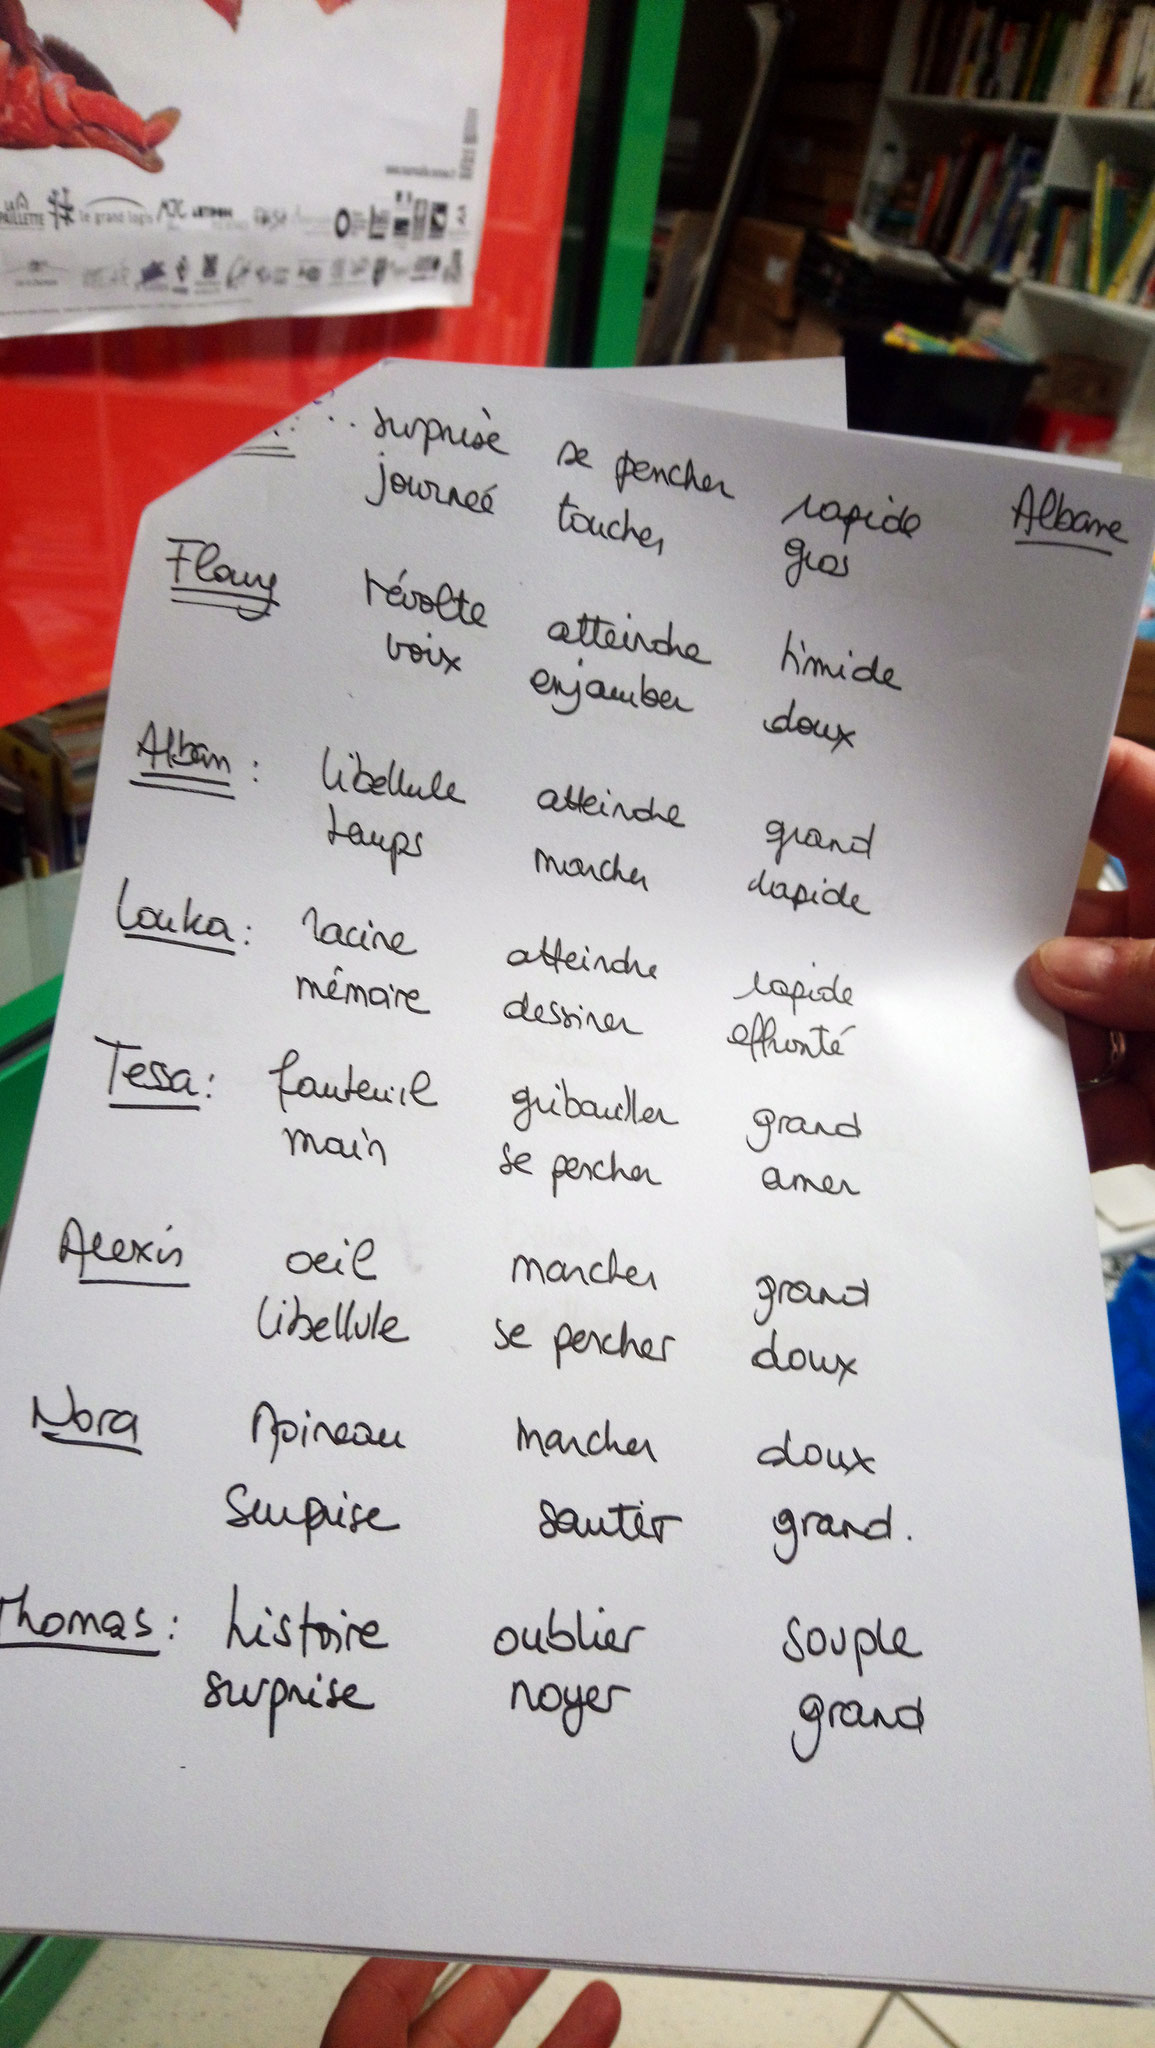 LA PAILLETTE le grand logis MJC
surprise se pencher rapide Albane
journeé toucher gros
Flavy révolte atteindre timide
voix enjamber doux
Alban : libellule atteindre grand
temps marcher rapide
Louka : racine atteindre rapide
mémoire dessiner effronté
Tessa : fauteuil gribouiller grand
main se percher amer
Alexis oeil marcher grand
libellule se percher doux
Nora moineau marcher doux
Surprise sauter grand.
Thomas : histoire oublier souple
surprise noyer grand